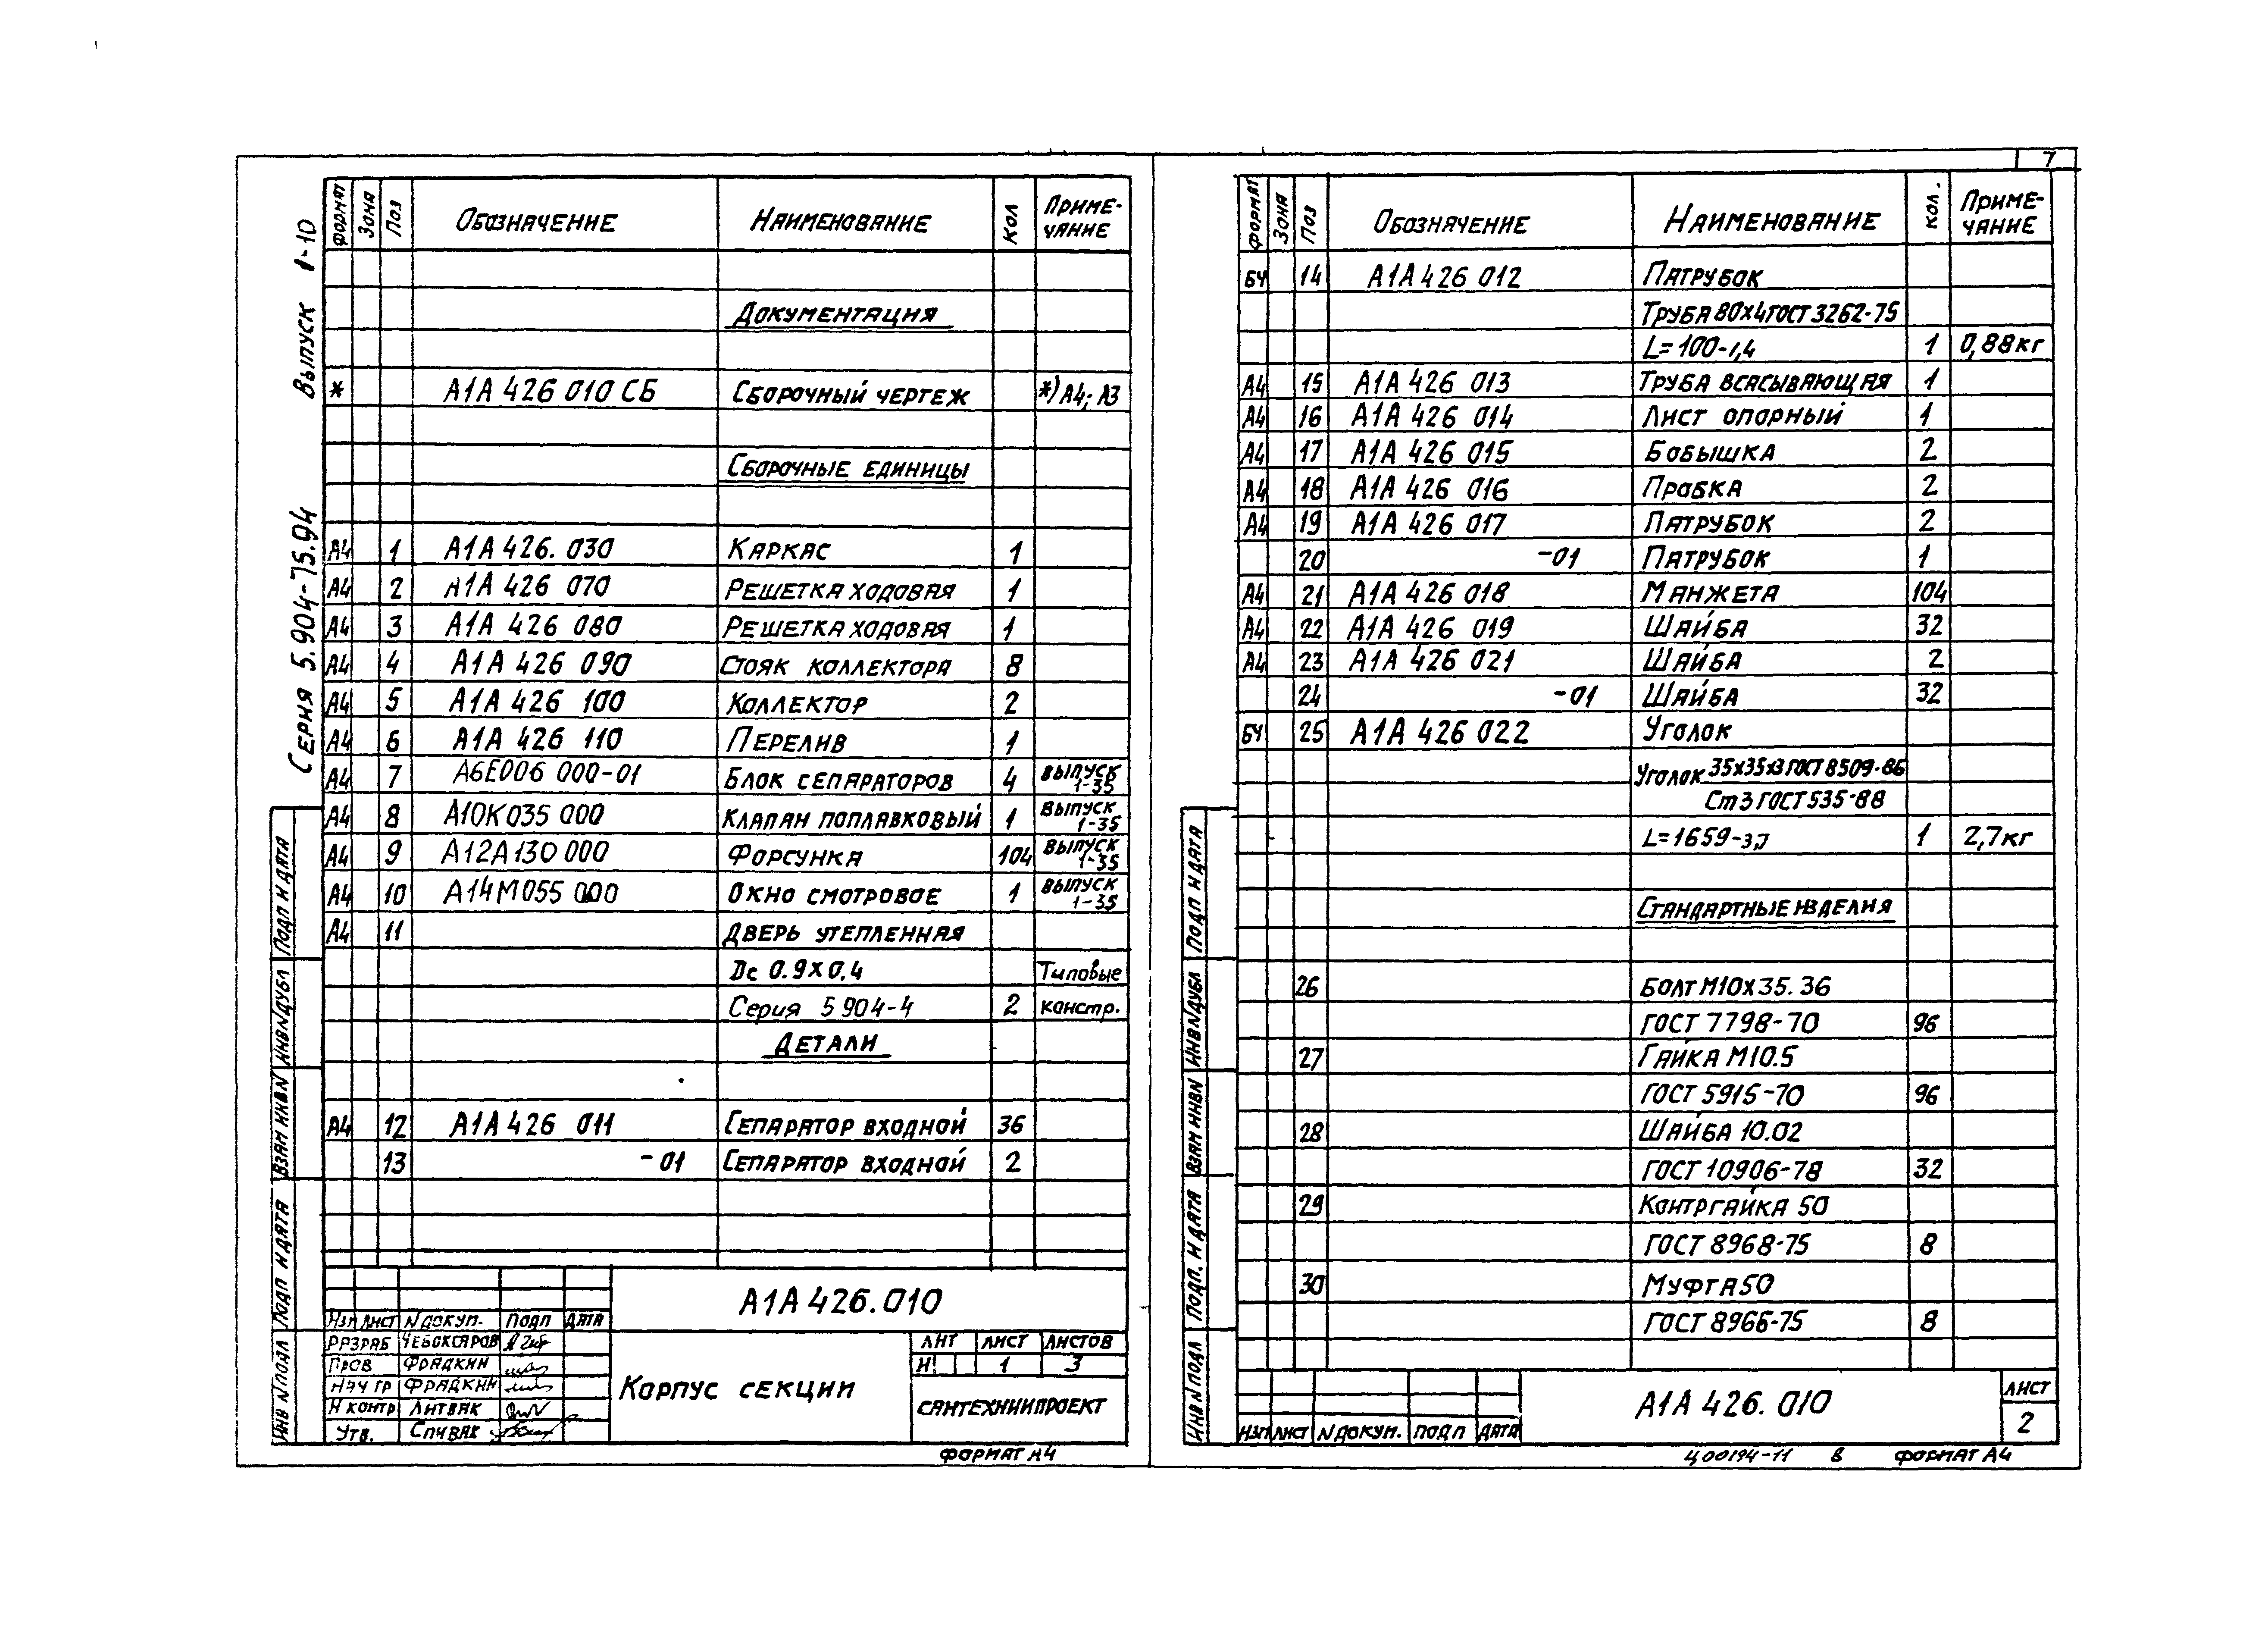 7
Серия 5.904-75.94 Выпуск 1-10
Формат Зона Поз Обозначение Наименование Кол Приме-
чание
Документация
* А1А 426 010 СБ Сборочный чертеж *) А4; А3
Сборочные единицы
А4 1 А1А 426. 030 Каркас 1
А4 2 А1А 426 070 Решетка ходовая 1
А4 3 А1А 426 080 Решетка ходовая 1
А4 4 А1А 426 090 Стояк коллектора 8
А4 5 А1А 426 100 Коллектор 2
А4 6 А1А 426 110 Перелив 1
А4 7 А6Е006 000-01 Блок сепараторов 4 выпуск
1-35
А4 8 А10К035 000 Клапан поплавковый 1 выпуск
1-35
А4 9 А12А130 000 Форсунка 104 выпуск
1-35
А4 10 А14М055 000 Окно смотровое 1 выпуск
1-35
А4 11 Дверь утепленная
Дс 0.9х0.4 Типовые
Серия 5 904-4 2 констр.
Детали
А4 12 А1А 426 011 Сепаратор входной 36
13 -01 Сепаратор входной 2
Подп и дата
Инв N дубл
Взам инв N
Подп и дата
Инв N подл
А1А 426.010
Изм Лист N докум. Подп Дата
Разраб Чебоксаров
Пров Фрадкин
Нач гр Фрадкин
Н контр Литвак
Утв. Спивак
Корпус секции
Лит Лист Листов
И 1 3
Сантехниипроект
Формат А4
Формат Зона Поз Обозначение Наименование Кол. Приме-
чание
БЧ 14 А1А 426 012 Патрубок
Труба 80х4 ГОСТ 3262-75
L=100-1,4 1 0,88кг
А4 15 А1А 426 013 Труба всасывающая 1
А4 16 А1А 426 014 Лист опорный 1
А4 17 А1А 426 015 Бобышка 2
А4 18 А1А 426 016 Пробка 2
А4 19 А1А 426 017 Патрубок 2
20 -01 Патрубок 1
А4 21 А1А 426 018 Манжета 104
А4 22 А1А 426 019 Шайба 32
А4 23 А1А 426 021 Шайба 2
24 -01 Шайба 32
БЧ 25 А1А 426 022 Уголок
Уголок 35х35х3 ГОСТ 8509-86
Ст3 ГОСТ 535-88
L=1659 1 2,7кг
Стандартные изделия
26 Болт М10х35. 36
ГОСТ 7798-70 96
27 Гайка М10.5
ГОСТ 5915-70 96
28 Шайба 10.02
ГОСТ 10906-78 32
29 Контргайка 50
ГОСТ 8968-75 8
30 Муфта 50
ГОСТ 8966-75 8
Подп и дата
Инв N дубл
Взам инв N
Подп. и дата
Инв N подл
Изм Лист N докум. Подп Дата
А1А 426. 010
Лист
2
Ц00194-11 8 Формат А4